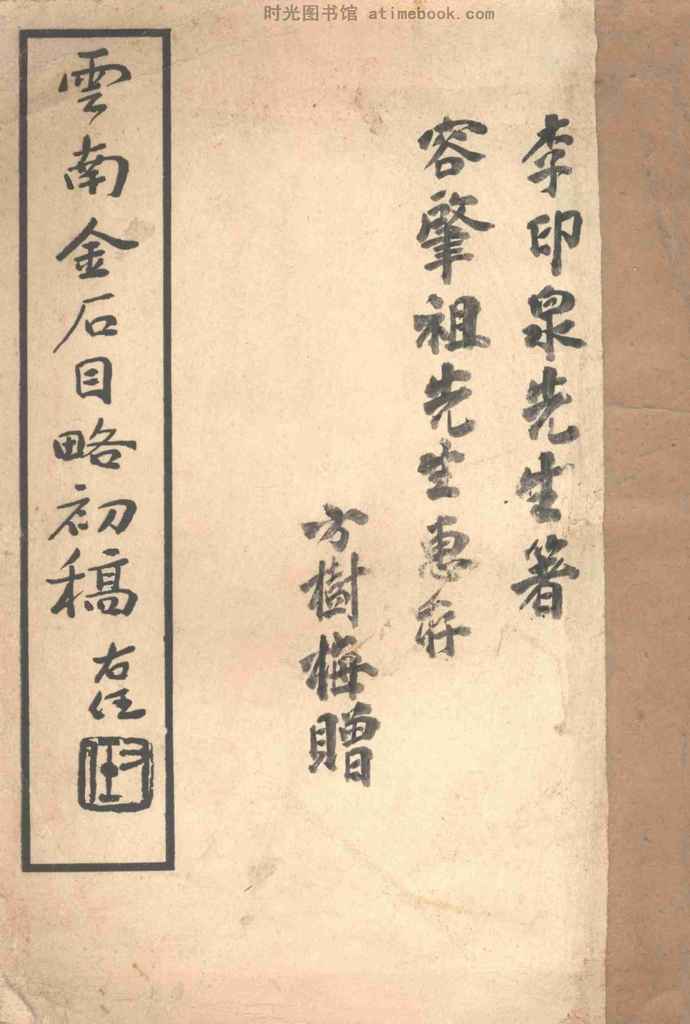 时光图书馆 atimebook.com
李印泉先生著
容肇祖先生惠存
方樹梅贈
雲南金石目略初稿
右任